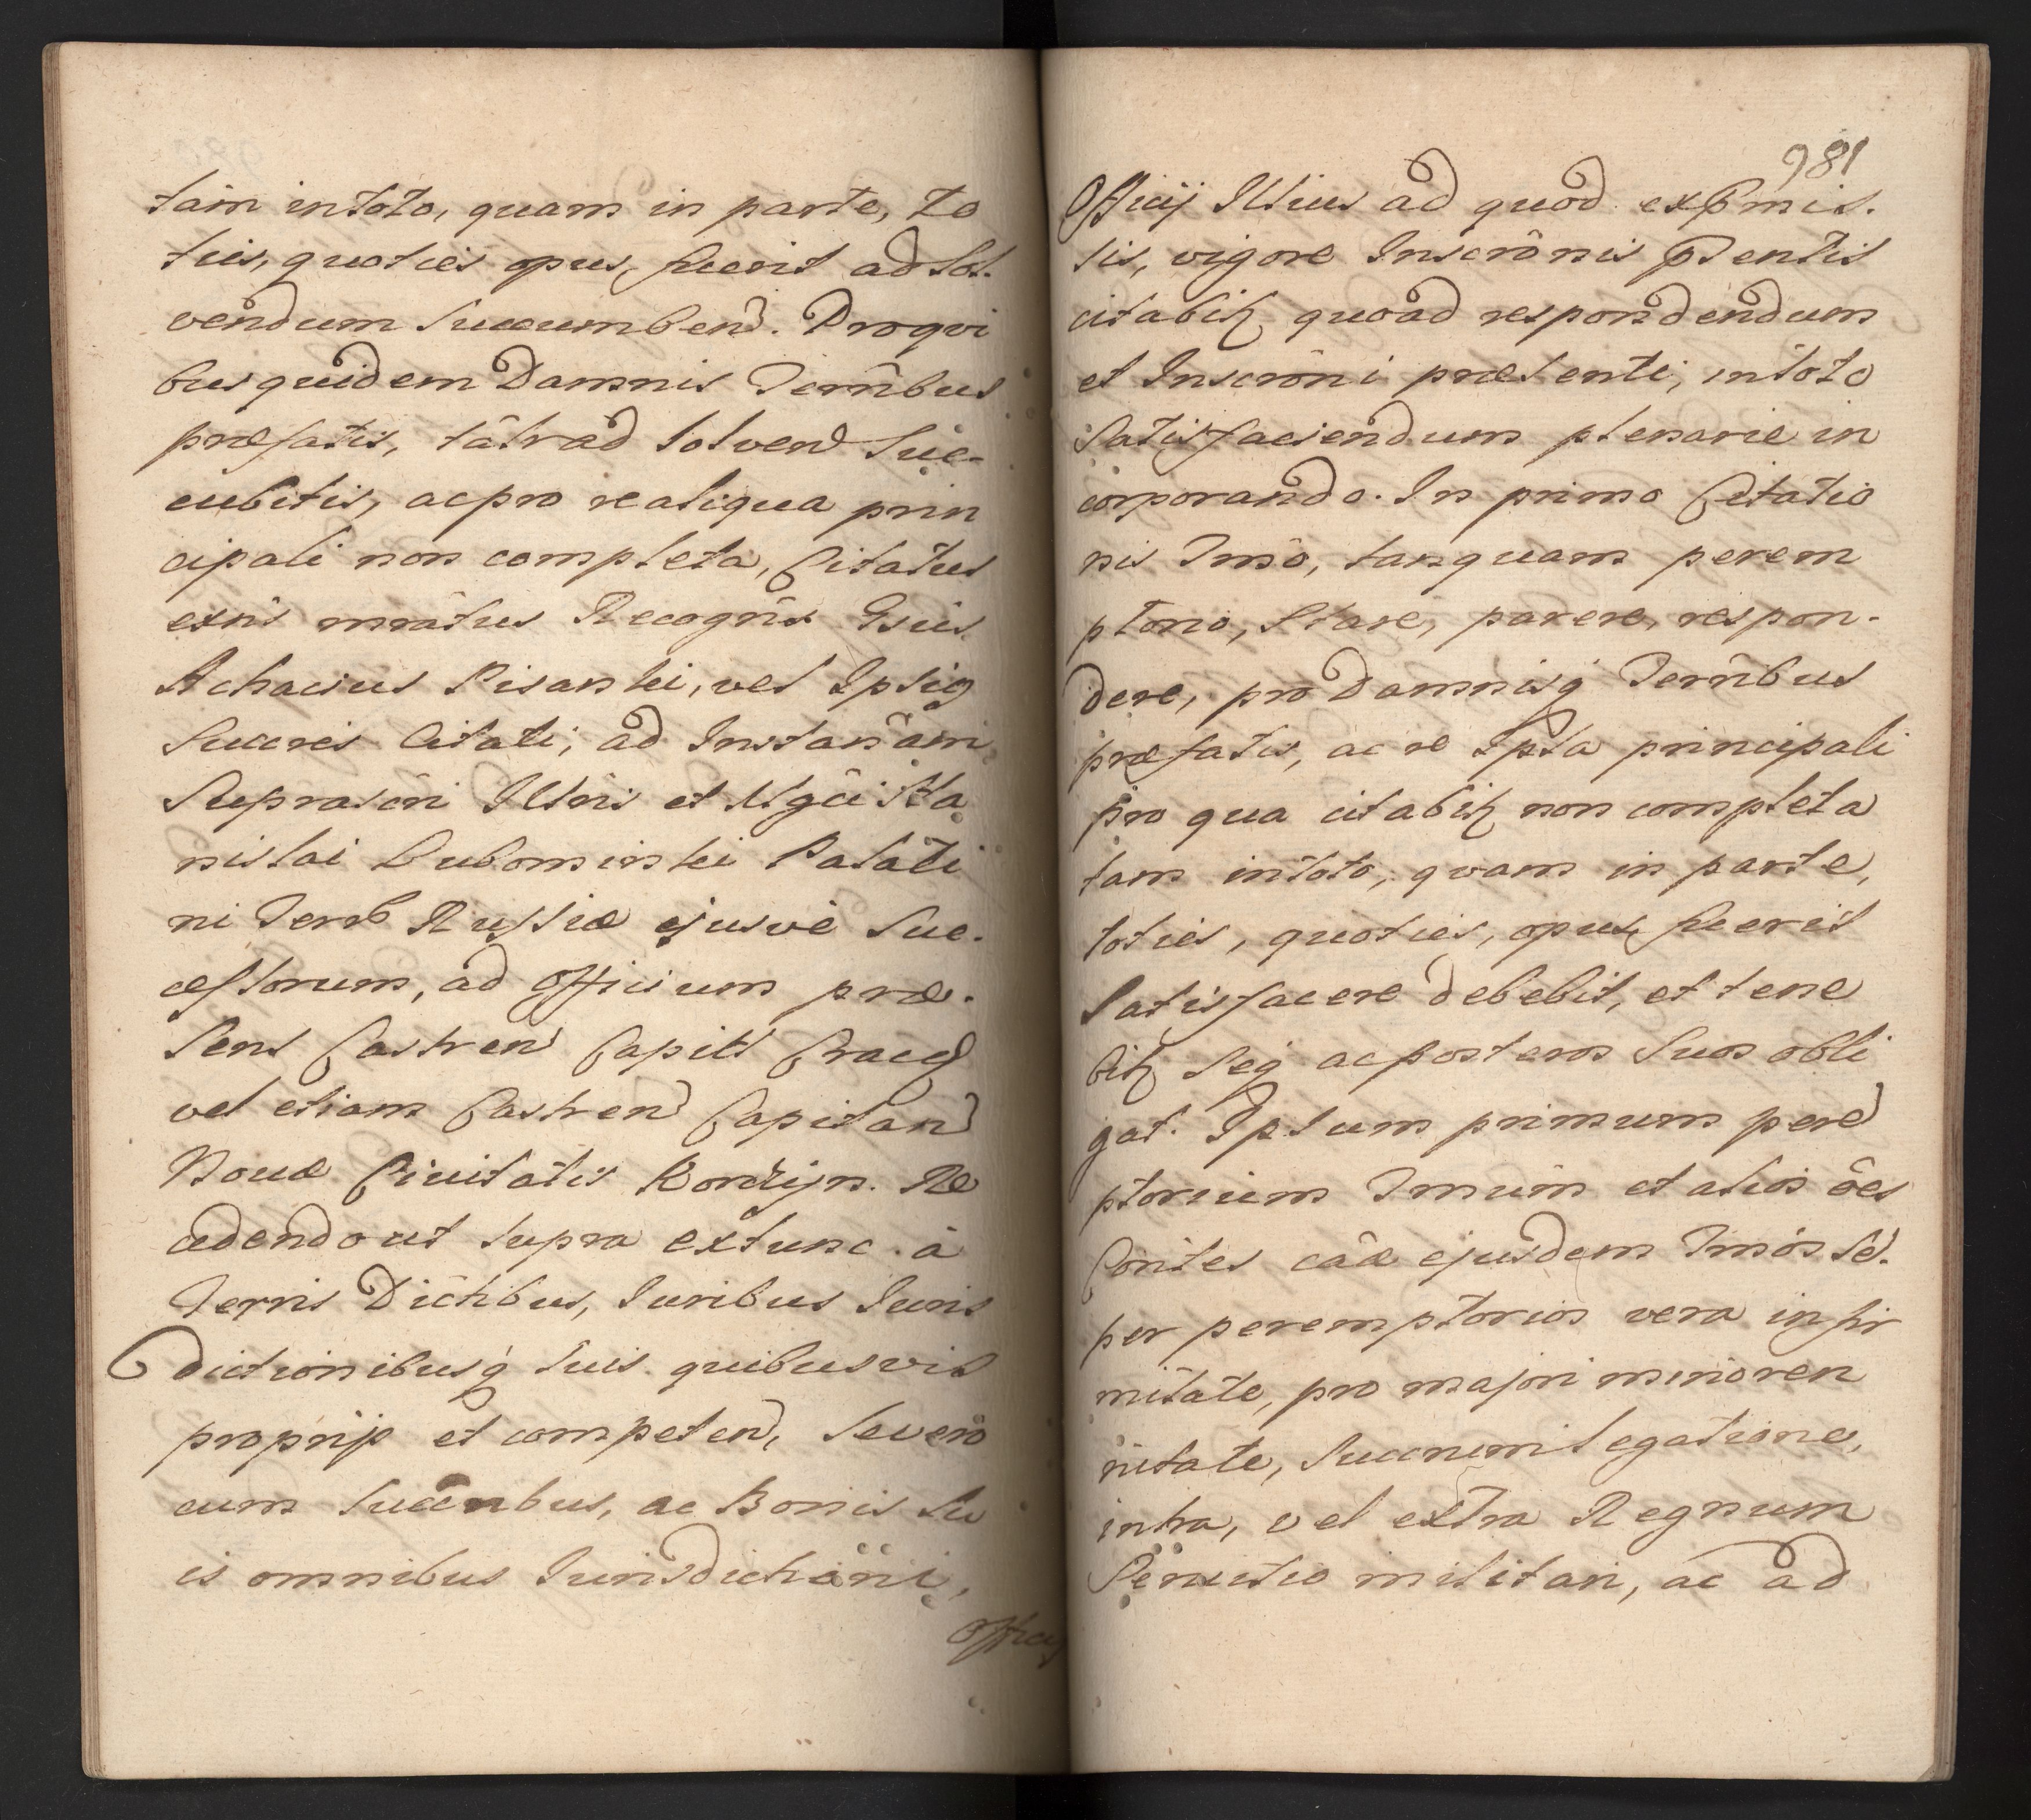 tam in toto, quam in parte, to
ties, quoties opus, fuerit ad sol.
vendum succumbend. Pro qvi
bus quidem Damnis Terribus
præfatis, tâlr ad solvend suc-
cubitis, ac pro re aliqua prin
cipali non completa, Citatus
exñs mratus Recogñs Gsus
Achacius Pisarski, vel Ipsig
Succres Citati, ad Instanâm
Suprascri Illris et Mgci Sta
nislai Lubomirski Palati
ni Terrar Russiæ ejusve Suc.
cessorum, ad Officium præ.
sens Castren Capitl Crac
vel etiam Castren Capitan
Novæ Civitatis Korczijn. Re
cedendo ut supra extunc à
Terris Dictibus, Juribus Juris
dictionibusq suis quibusvis
proprijs et competen, se vero
cum Succribus, ac Bonis su
is omnibus Jurisdictioni,
Officij
981
Officij Illius ad quod ex pmis.
sis, vigore Inscrônis pntis
citabitz quoad respondendum
et Inscrôni præsenti, in toto
satisfaciendum plenarie in
corporando. In primo Citatio
nis Tmô, tanquam perem
ptorio, stare, parere, respon.
dere, pro Damnisq Terribus
præfatis, ac re Ipsa principali
pro qua citabitz non completa
tam in toto, qvam in parte,
toties, quoties, opus, fuerit
satisfacere debebit, et tene
bitz seq ac posteros suos obli
gat. Ipsum primum perem
ptorium Tmum et alios ões
Contes câæ ejusdem Tmos se.
per peremptorios vera infir
mitate, pro majori minoren
nitate, Succrum legatione,
intra, vel extra Regnum
Servitio militari, ac ad